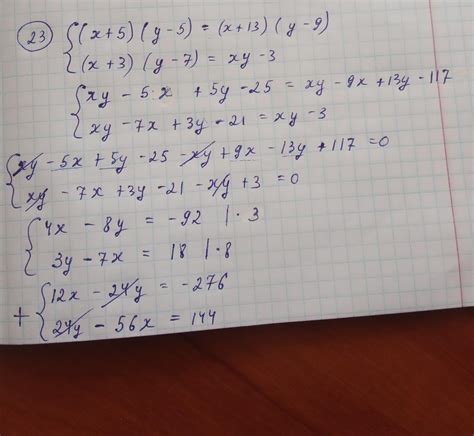 23 (x+5)(y-5) = (x+13)(y-9)
(x+3)(y-7) = xy-3
xy - 5·x + 5y - 25 = xy - 9x + 13y - 117
xy - 7x + 3y - 21 = xy - 3
xy - 5x + 5y - 25 - xy + 9x - 13y + 117 = 0
xy - 7x + 3y - 21 - xy + 3 = 0
4x - 8y = -92 |·3
3y - 7x = 18 |·8
+ 12x - 24y = -276
24y - 56x = 144